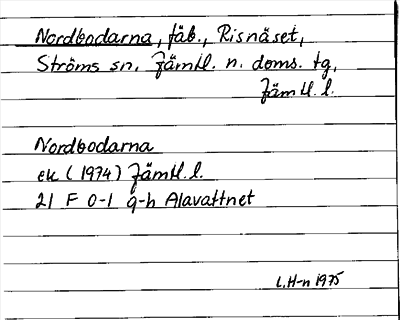 Nordbodarna, fäb., Risnäset,
Ströms sn, Jämtl. n. doms. tg,
Jämtl. l.
Nordbodarna
ek (1974) Jämtl. l.
21 F 0-1 g-h Alavattnet
L.H-n 1975